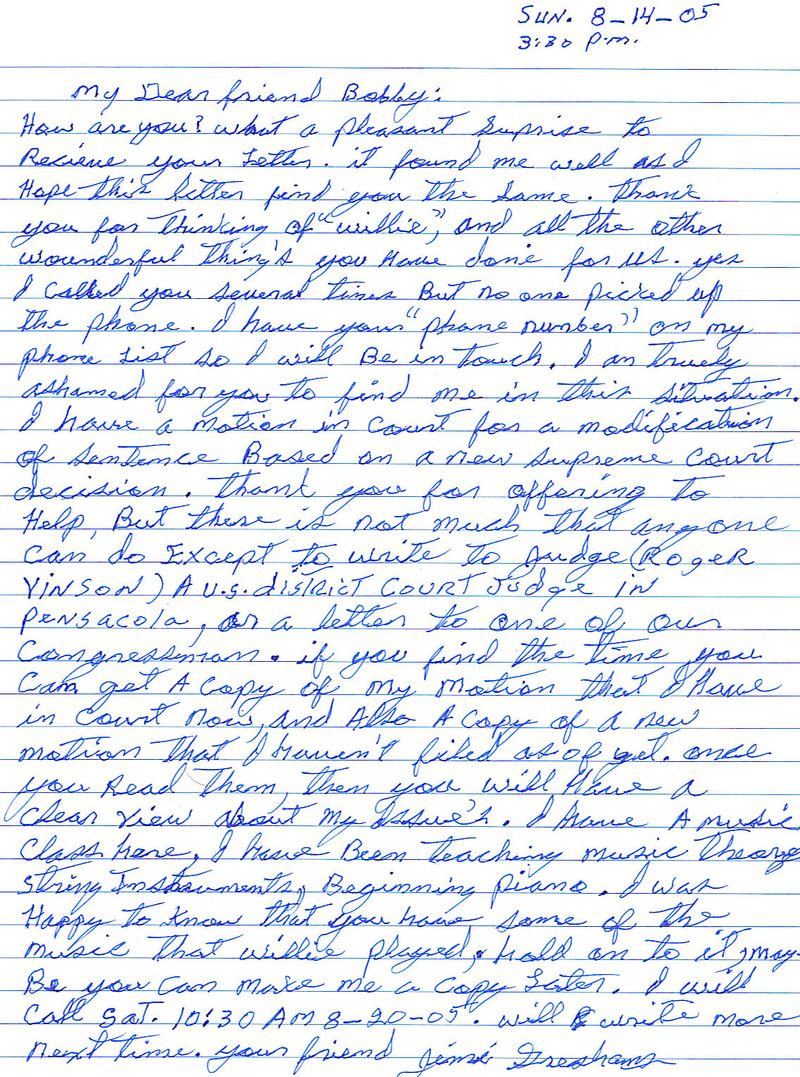 SUN. 8-14-05
3:30 p.m.
My Dear friend Bobby:
How are you? what a pleasant Suprise to
Recieve your Letter. it found me well as I
Hope this letter find you the Same. Thank
you for thinking of "willie", and all the other
wounderful thing's you Have done for us. yes
I called you several times But no one picked up
the phone. I have your "phone number" on my
phone List so I will Be in touch. I am truely
ashamed for you to find me in this situation.
I have a Motion in Court for a modification
of Sentence Based on a new Supreme Court
decision. Thank you for offering to
Help, But there is not much that anyone
Can do Except to write to Judge (ROGER
VINSON) A U.S. district COURT Judge in
PENSACOLA, or a letter to one of our
Congressman. if you find the time you
Can get A Copy of My Motion that I Have
in Court Now, and Also A Copy of a new
motion that I Haven't filed as of yet. once
you Read Them, then you will Have a
Clear View about My Issue's. I have A music
Class here, I have Been teaching music theory
String Instruments, Beginning piano. I was
Happy to Know that you have some of the
Music that willie played, hold on to it, may-
Be you Can make me a Copy Later. I will
Call Sat. 10:30 AM 8-20-05. will write more
next time. your friend